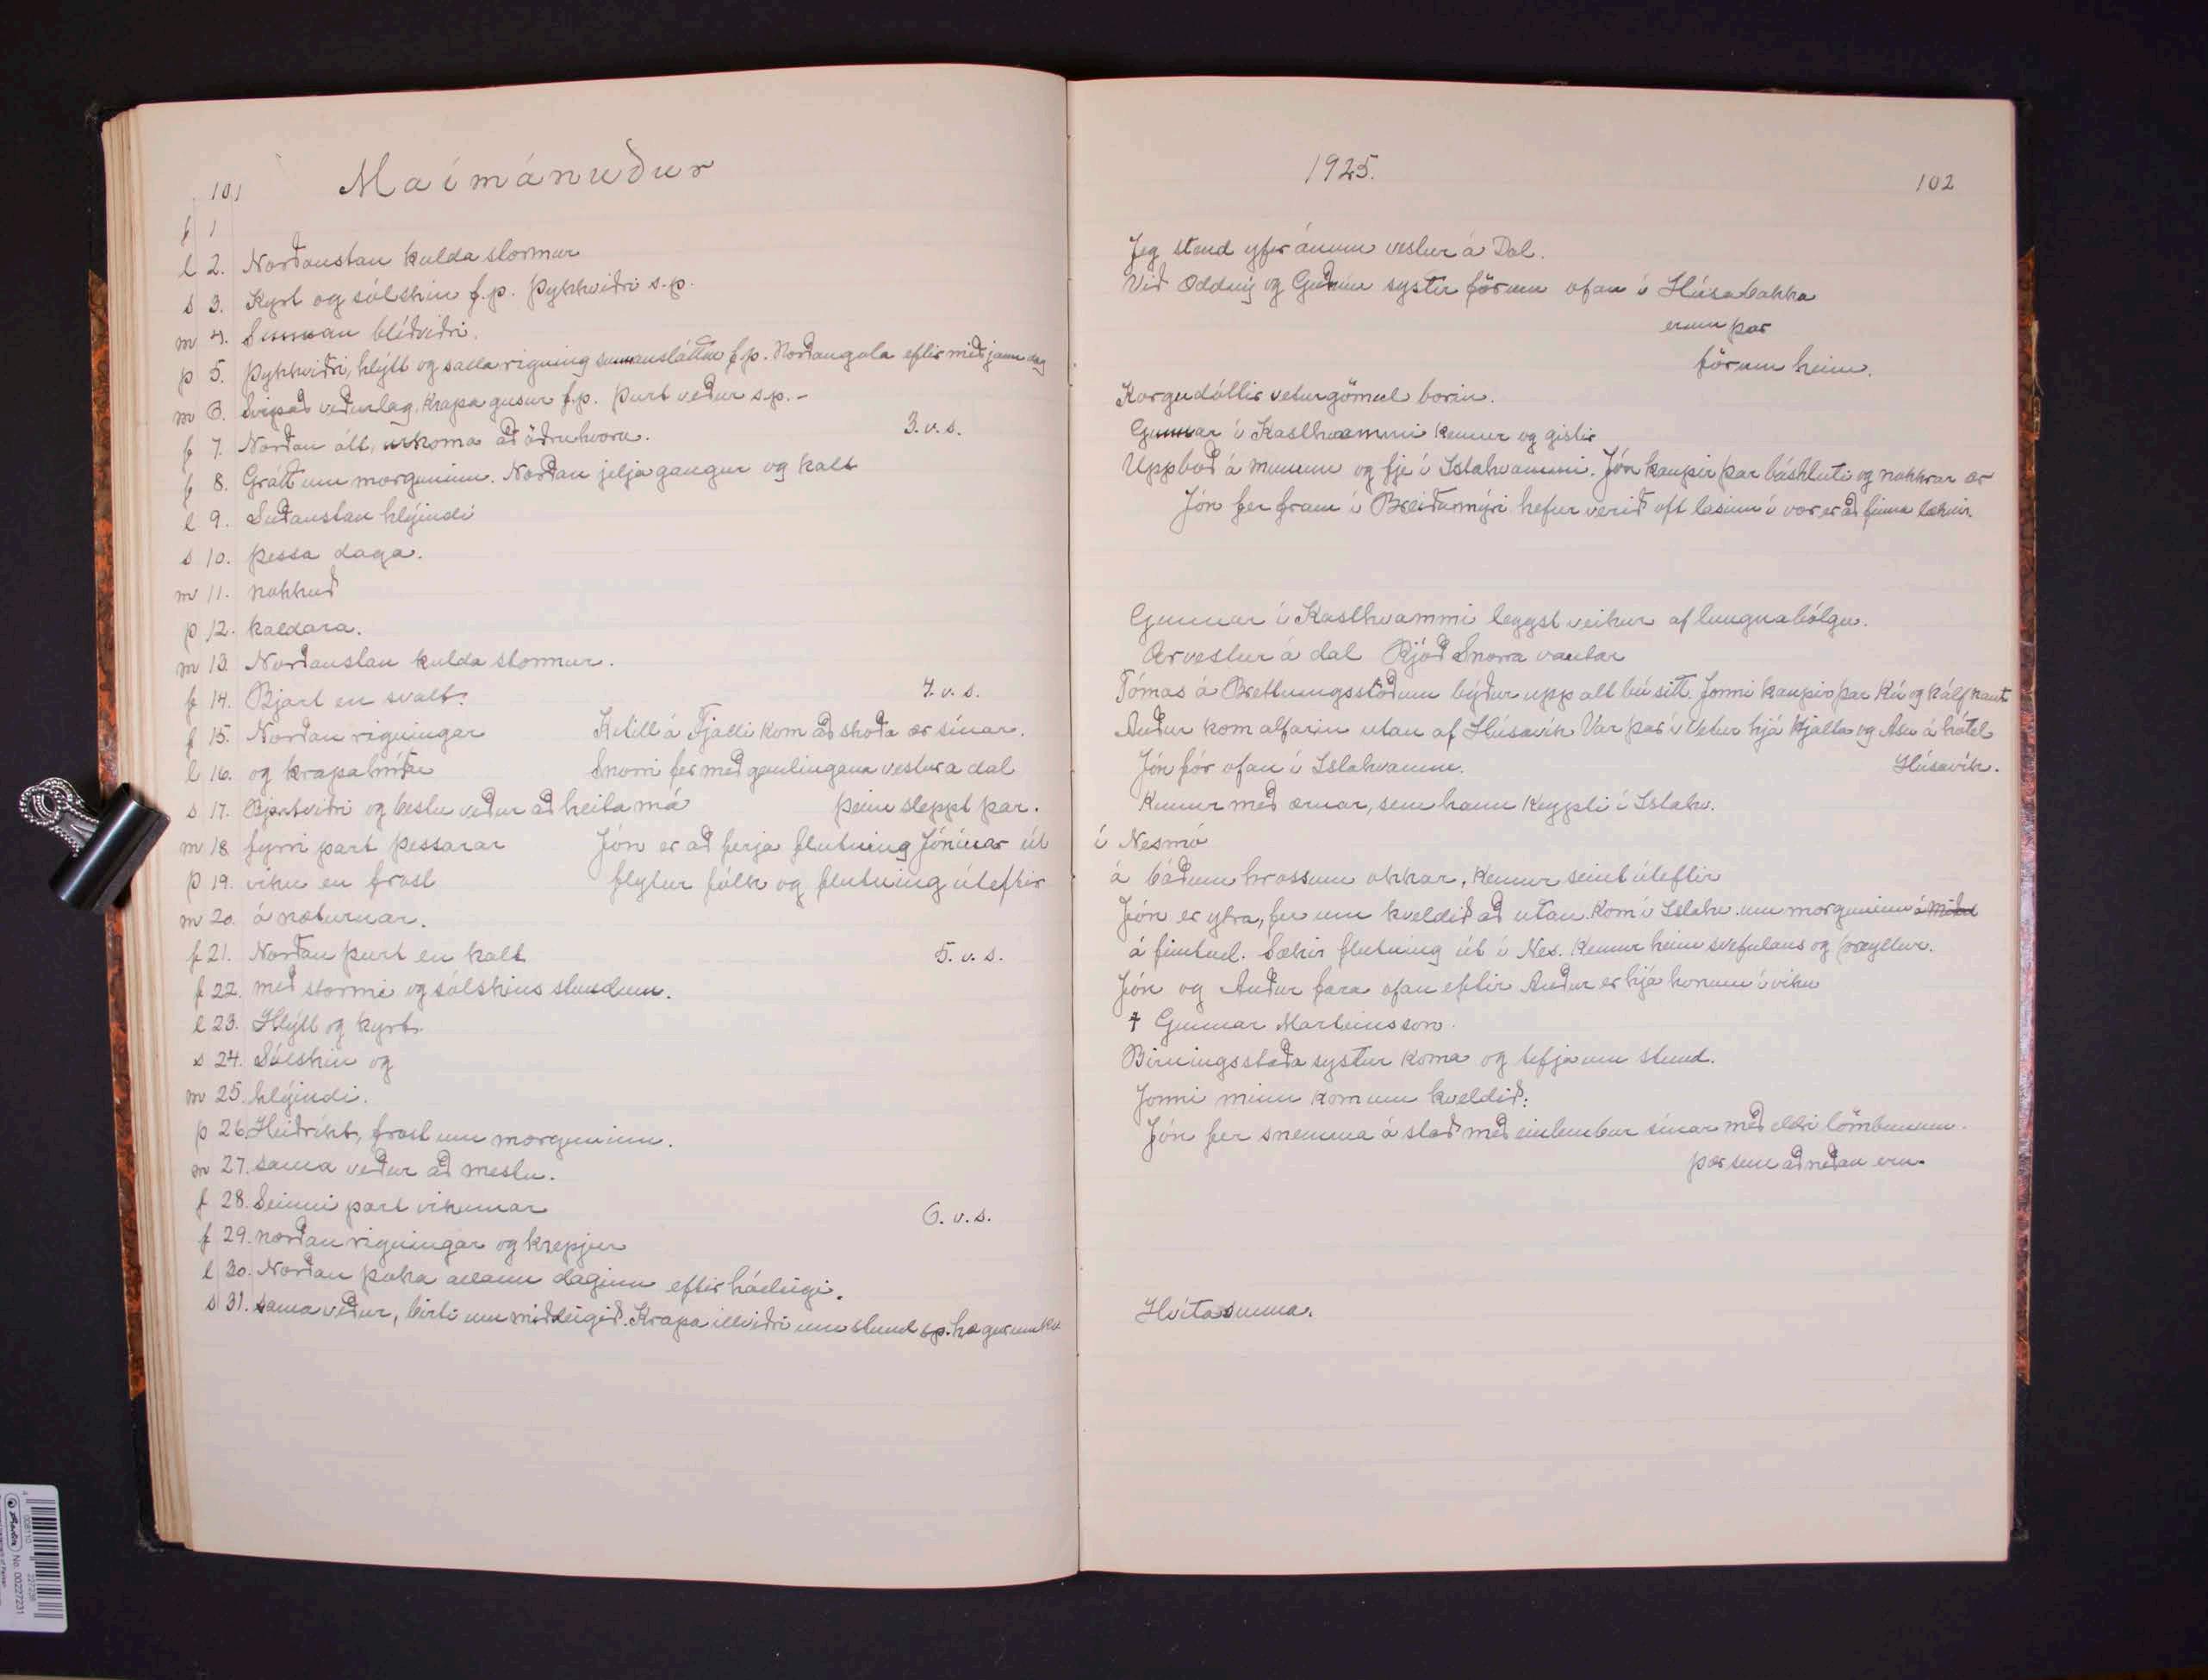 101 Maímánuður
f 1
l 2. Norðaustan kulda stormur
s 3. Kyrt og sólskin f.p. Þykkviðri s.p.
m 4. Sunnan blíðviðri.
þ 5. Þykkviðri, hlýtt og salla rigning sunnanslátta f.p. Norðangola eftir miðjann dag
m 6. Svipað veðurlag. Krapa gusur f.p. Þurt veður s.p.-
f 7. Norðan átt, úrkoma að öðruhvoru. 3. v. s.
f 8. Grátt um morguninn. Norðan jeljagangur og kalt
l 9. Suðaustan hlýindi
s 10. þessa daga.
m 11. nokkuð
þ 12. kaldara.
m 13. Norðaustan kulda stormur.
f 14. Bjart en svalt. 4. v. s.
f 15. Norðan rigningar Ketill á Fjalli kom að skoða ær sínar.
l 16. og krapahríðar Snorri fer með gemlingana vestur a dal
s 17. Bjartviðri og bestu veður að heita má þeim sleppt þar.
m 18. fyrri part þessarar Jón er að ferja flutning Jónínar út
þ 19. viku en frost flytur fólk og flutning úteftir
m 20. á næturnar.
f 21. Norðan þurt en kalt 5. v. s.
f 22. með stormi og sólskins stundum.
l 23. Hlýtt og kyrt.
s 24. Sólskin og
m 25. hlýindi.
þ 26. Heiðríkt, frost um morguninn.
m 27. sama veður að mestu.
f 28. Seinni part vikunnar 6. v. s.
f 29. norðan rigningar og krepjur
l 30. Norðan þoka allann daginn eftir hádegi.
s 31. sama veður, birti um middegið. Krapa illviðri um stund s.p. hægur um kv
1925. 102
Jeg stend yfir ánum vestur á Dal.
Við Oddný og Guðrún systir förum ofan í Húsabakka
erum þar
förum heim.
Korgudóttir veturgömul borin.
Gunnar í Kasthvammi kemur og gistir
Uppboð á munum og fje í Islahvammi. Jón kaupir þar báshluti og nokkrar ær
Jón fer fram í Breiðumýri hefur verið oft lasinn í vor er að finna læknir.
Gunnar í Kasthvammi leggst veikur af lungnabólgu.
Ær vestur á dal Rjóð Snorra vantar
Tómas á Brettningsstöðum býður upp alt bú sitt. Jonni kaupir þar Kú og kálf naut
Auður kom alfarin utan af Húsavík Var þar í vetur hjá Hjalta og Ásu á hótel
Jón fór ofan í Islahvamm. Húsavík.
Kemur með ærnar, sem hann keypti í Islahv.
í Nesmó
á báðum hrossum okkar, kemur seint úteftir
Jón er ytra, fer um kveldið að utan. Kom í Islahv. um morguninn á
á fimtud. Sækir flutning út í Nes. Kemur heim svefnlaus og þreyttur.
Jón og Auður fara ofan eftir Auður er hjá honum í viku
† Gunnar Marteinsson.
Birningsstaða systur koma og tefja um stund.
Jonni minn kom um kveldið.
Jón fer snemma á stað með einlembur sínar með eldri lömbunum.
þær sem að neðan eru.
Hvítasunna.